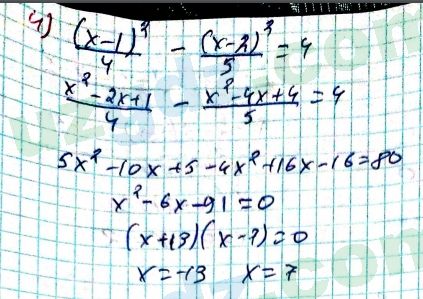 4) (x-1)²/4 - (x-2)²/5 = 4
x²-2x+1/4 - x²-4x+4/5 = 4
5x²-10x+5-4x²+16x-16=80
x²-6x-91=0
(x+13)(x-7)=0
x=-13 x=7